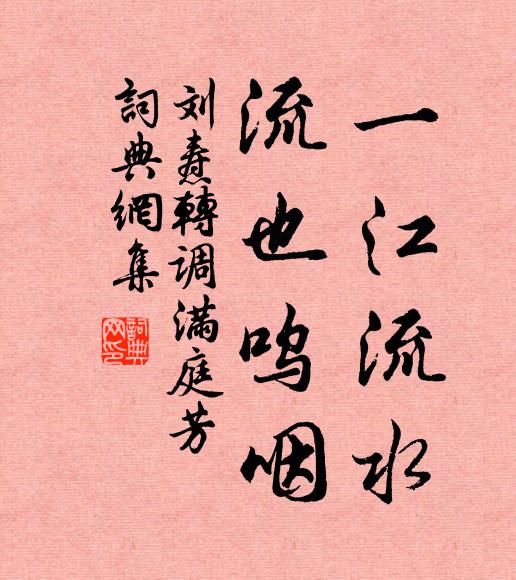 一江流水
流也呜咽
刘焘轉调满庭芳
詞典網集
詞典网印